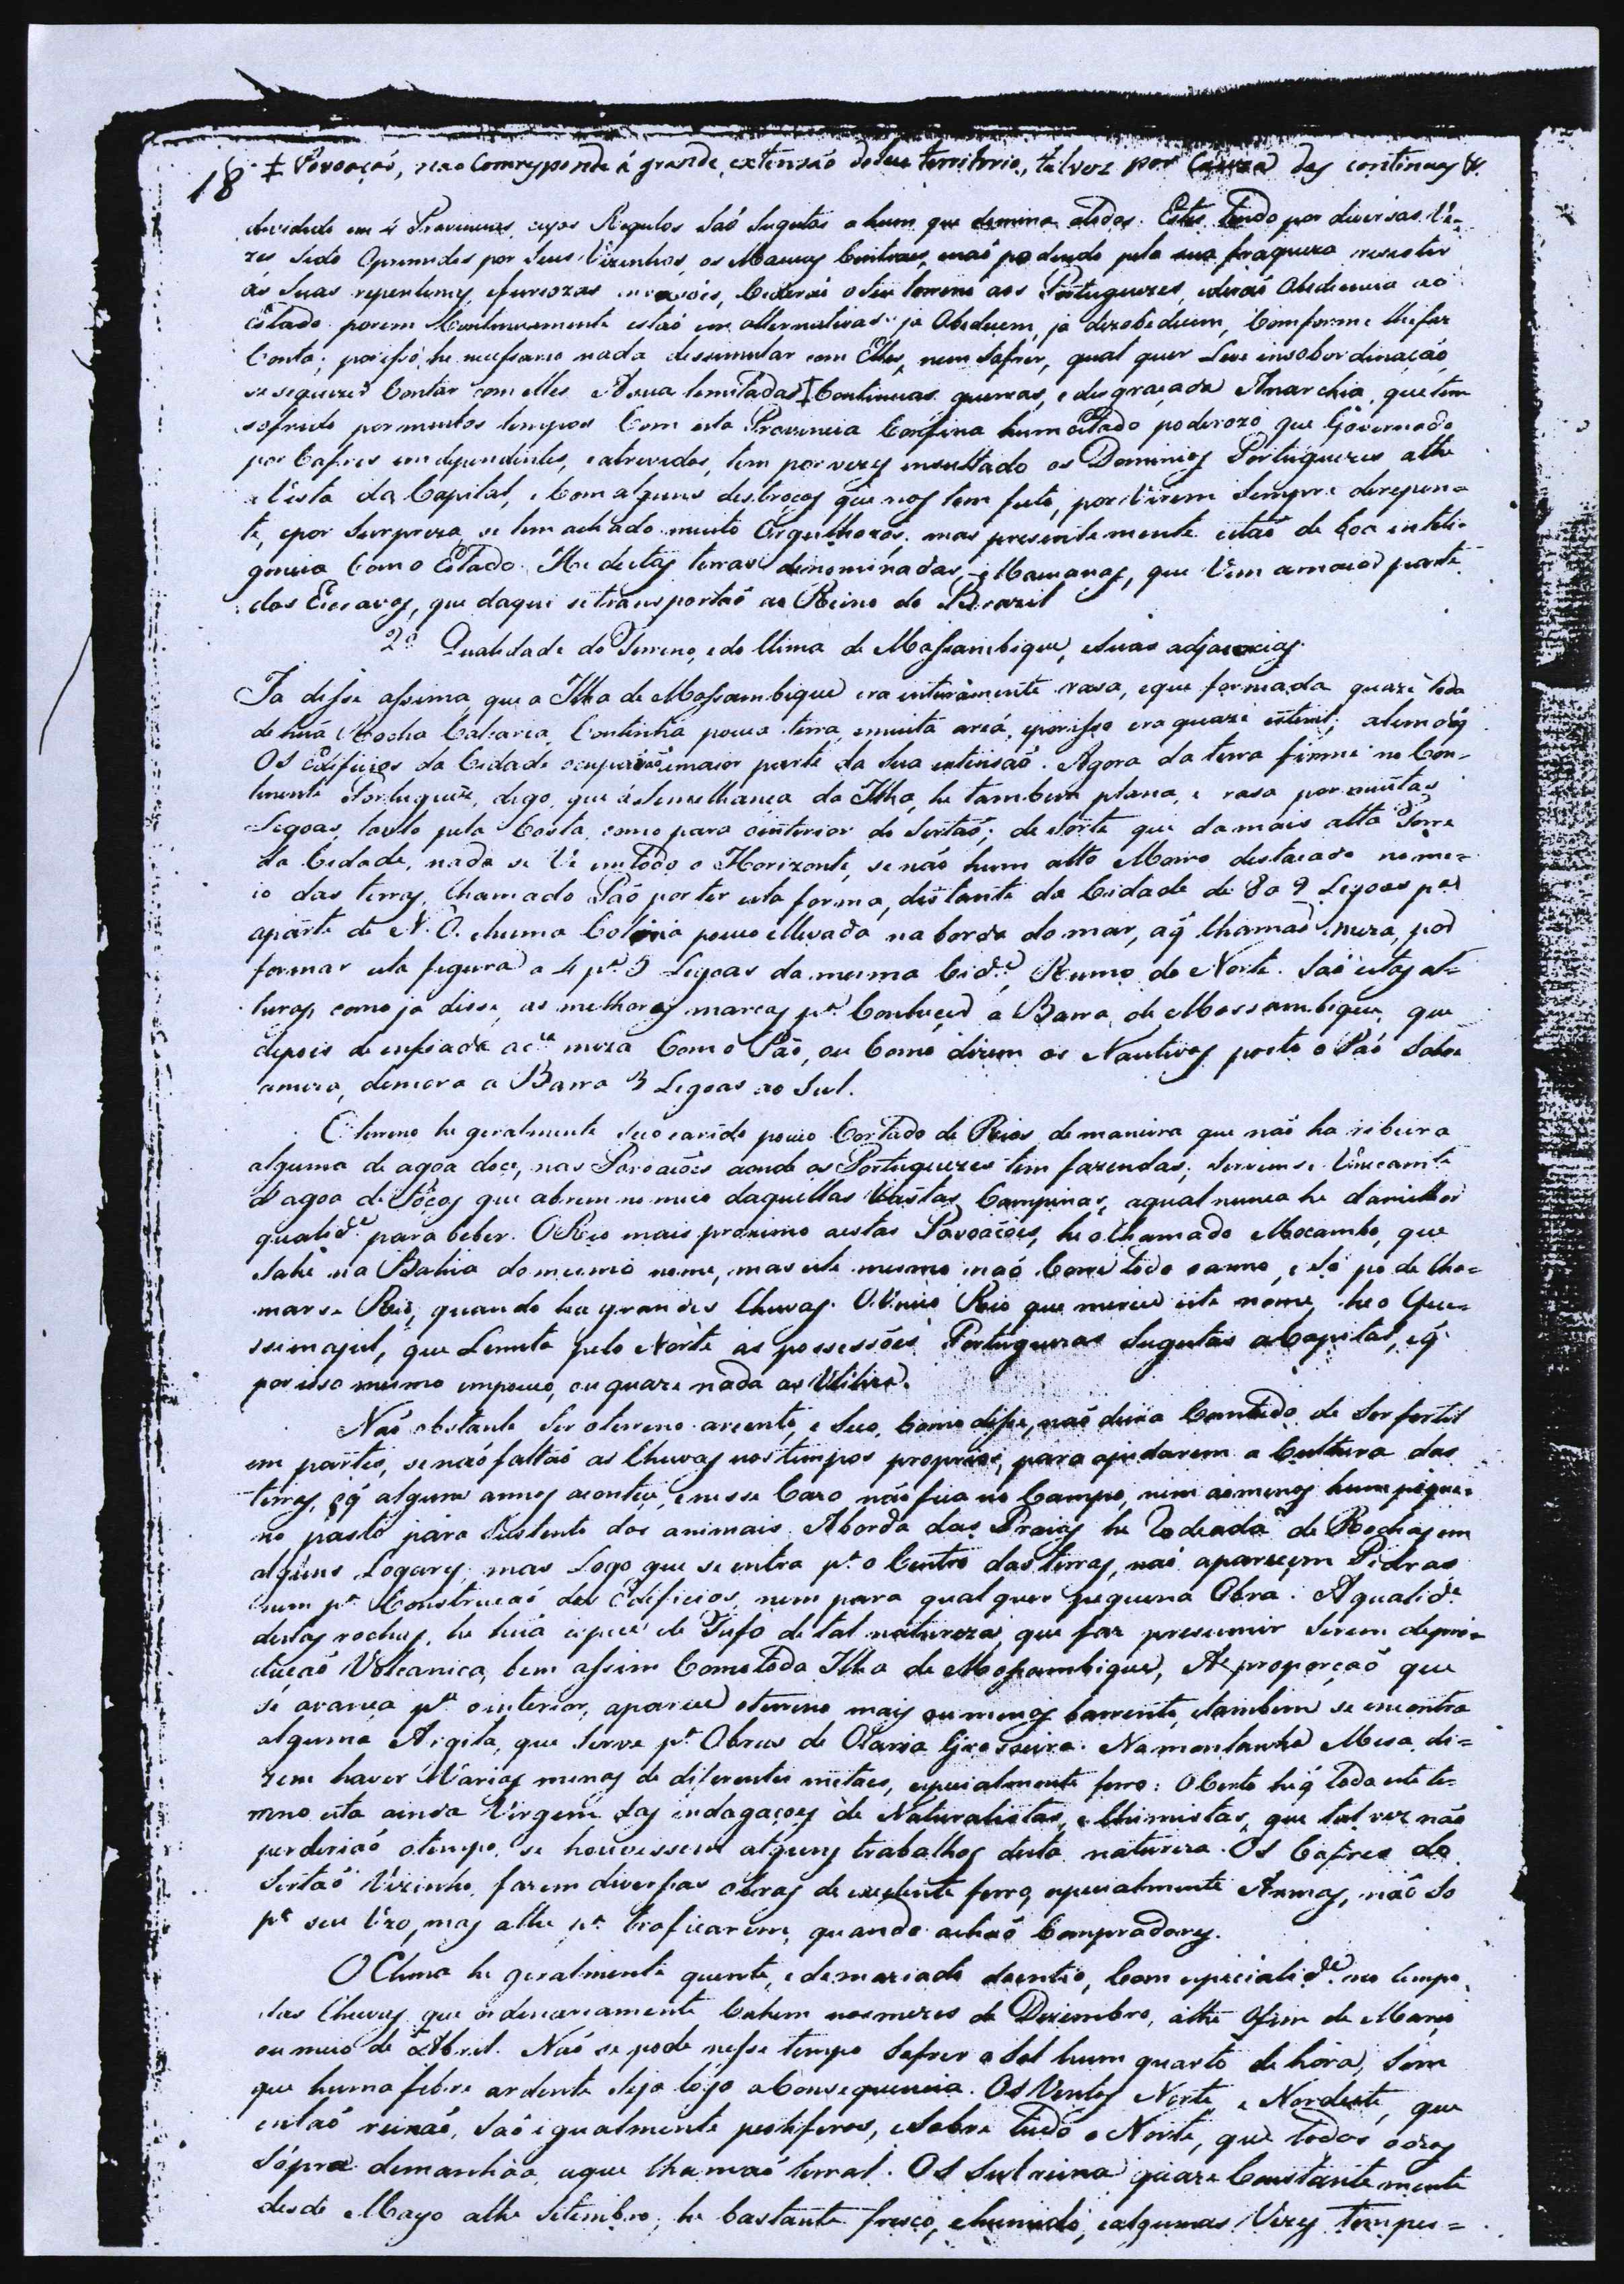 18 ‡ Povoaçaõ, naõ Comresponde á grande extensão do seu territorio, talvez por Cauza das continuas &.
devidido em 4 Provincias, cujos Regulos Saõ Sugeitos a hum que domina a todos. Estes tendo por diversas Ve=
zes Sido Oprimidos por Seus Vizinhos, os Macuas Centraes, naõ podendo pela sua fraqueza resestir
ás Suas repentinas, e furiozas invazoẽs, Cederaõ o seu terreno aos Portuguezes, e deraõ Obediencia ao
Estado porem Continuamente estaõ em alternativas: ja Obedecem, ja dezobedecem, Comforme lhe faz
Conta; porisso he necessario nada dessimular com Elles, nem Sofrer, qual quer Leve insobordinaçaõ,
se se quizer Contar com elles A sua lemitada ‡ Continuas guerras, e desgraçada Anarchia, que tem
sofrido por muitos tempos Com esta Provincia Confina hum Estado poderozo que Governado
por Cafres independentes, e atrevidos, tem por vezes insultado os Dominios Portuguezes athe
a Vista da Capital, e Com alguns destroços que nos tem feito, por Virem Sempre de repen=
te, e por Surpreza, se tem achado muito Orgulhozos; mas prezentemente estaõ de boa inteli=
gencia Com o Estado. He destas terras denominadas, Macuanas, que Vem a maior parte
dos Escravos, que daqui se transportaõ ao Reino do Brazil
2º Qualidade do Terreno, e do Clima de Mossambique, e suas adjacencias.
Ja disse assima, que a Ilha de Mossambique era inteiramente raza, e que formada quazi toda
de huã Rocha Calcaria, Continha pouca terra, e muita areã, e porisso era quazi esteril; alem dq
Os Edificios da Cidade ocupavaõ a maior parte da Sua extensaõ. Agora da terra firme no Con=
tinente Portuguez, digo, que á Semelhança da Ilha, he tambem plana, e rasa por muitas
Legoas, tanto pela Costa, como para o interior do Sertaõ; de Sorte que da mais alta Torre
da Cidade, nada se Vê em todo o Horizonte, se não hum alto Morro destacado no me=
io das terras, Chamado Paõ por ter esta forma, distante da Cidade de 8 a 9 Legoas pª
a parte de N. O. e huma Colina pouco ellevada na borda do mar, a q̃ Chamaõ meza, por
formar esta figura a 4 pª 5 Legoas da mesma Cidᵉ, Rumo do Norte. Saõ estas al=
turas, como ja disse, as melhores marcas pª Conhecer a Barra de Mossambique, que
depois de enfiada a cª meza Com o Paõ, ou Como dizem os Nauticos posto o Paõ Sobre
a meza, demora a Barra 3 Legoas ao Sul.
O terreno he geralmente Seco e arido pouco Cortado de Rios, de maneira que naõ ha ribeira
alguma de agoa doce, nas Povoaçoẽs aonde os Portuguezes tem fazendas; Servem se Unicamᵗᵉ
d'agoa de Poços que abrem no meio daquellas Vastas Campinas, a qual nunca he da milhor
qualidᵉ para beber. O Rio mais proximo a estas Povoaçoẽs, he o Chamado Mocambo, que
Sahe na Bahia do mesmo nome, mas este mesmo naõ Corre todo o anno, e Só pode Cha=
mar se Rio, quando ha grandes Chuvas. O Unico Rio que merece este nome, he o Quis=
simajul, que Lemita pelo Norte as possessões Portuguezas Sugeitas a Capital, e q̃
por isso mesmo em pouco, ou quazi nada as Utiliza.
Naõ obstante Ser o terreno areento, e Seco, Como disse, naõ deixa Comtudo de Ser fertil
em partes, se naõ faltaõ as Chuvas nos tempos proprios, para ajudarem a Cultura das
terras, o q̃ alguns annos acontece, e nesse Cazo não fica no Campo, nem ao menos hum peque=
no pasto para Sustento dos animais A borda das Praias he rodeada de Rochas em
alguns Logares, mas Logo que se entra pª o Centro das terras, naõ aparecem Pedras
nem pª Construcaõ dos Edificios, nem para qual quer pequena Obra. A qualidᵉ
destas rochas, he huã especie de Tufo de tal natureza, que faz presumir Serem de pro=
duçaõ Volcanica, bem assim Como toda Ilha de Mossambique, A' proporçaõ que
se avança pª o interior, aparece o terreno mais ou menos barrento, e tambem se encontra
alguma Argila, que Serve pª Obras de Olaria Grosseira. Na montanha Mesa di=
zem haver Varias minas de diferentes metaes, especialmente ferro: O Certo he q̃ todo este te=
rreno está ainda Virgem das indagaçoẽs de Naturalistas, e Chimistas, que talvez naõ
perderiaõ o tempo, se houvessem alguns trabalhos desta natureza. Os Cafres do
Sertaõ Vizinho, fazem diversas obras de excelente ferro, especialmente Armas, naõ só
pª seu Uzo, mas athe pª traficarem, quando achaõ Compradores.
O Clima he geralmente quente, e demaziado doentio, Com especialidᵉ no tempo
das Chuvas, que ordenariamente Cahem nos mezes de Dezembro, athe O fim de Março
ou meio de Abril. Naõ se pode nesse tempo Sofrer o Sol hum quarto de hora, Sem
que huma febre ardente seja logo a Consequencia. Os Ventos Norte, e Nordeste, que
entaõ reinaõ, Saõ igualmente pestiferos, e Sobre tudo o Norte, que todos os dias
Sópra de manhãa a que Chamaõ terral. Os Sul reina quaze Constantemente
desde Mayo athe Setembro; he bastante fresco, e humido, e algumas Vezes tempes=